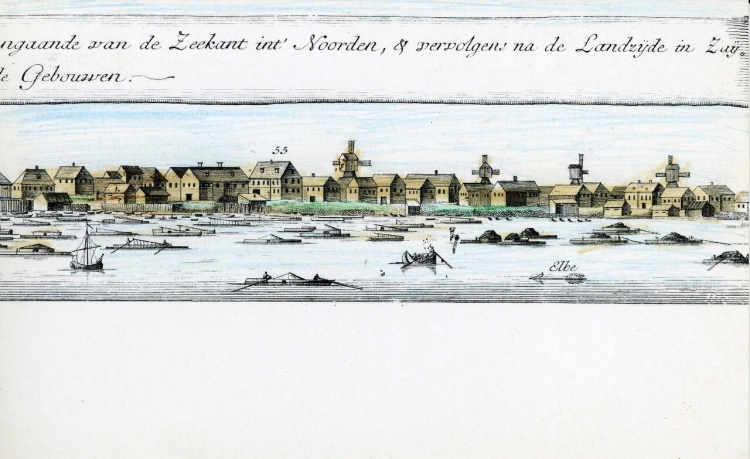 ngaande van de Zeekant int' Noorden, & vervolgens na de Landzÿde in Zuy-
le Gebouwen.
55
Elbe